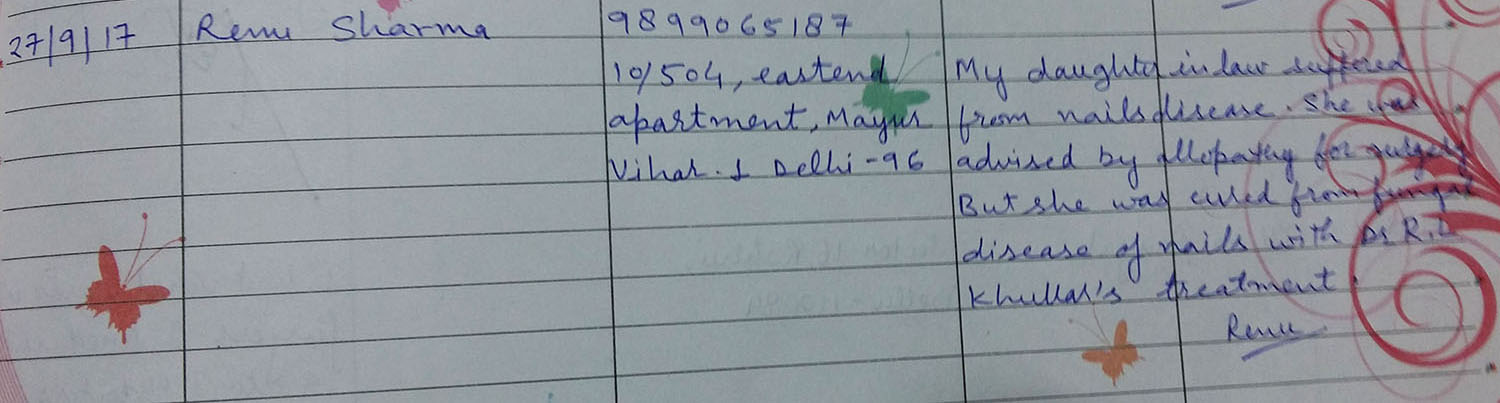 27/9/17 Renu Sharma 9899065187
10/504, eastend My daughter inlaw suffered
apartment, Mayur from nails disease. She was
Vihar. I Delhi-96 advised by allopathy for surgery
But she was cured from fungal
disease of nails with Dr R.L
Khullar's treatment
Renu